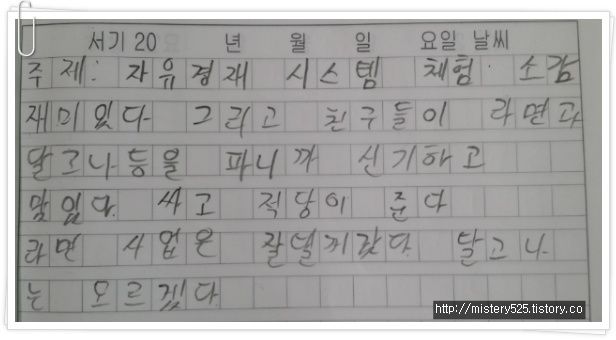 서기 20 년 월 일 요일 날씨
주제: 자유경재 시스템 체험 소감
재미있다 그리고 친구들이 라면과
달고나등을 파니까 신기하고
맛있다. 싸고 적당이 준다
라면 사업은 잘될거같다 달고나
는 모르겠다
http://mistery525.tistory.co